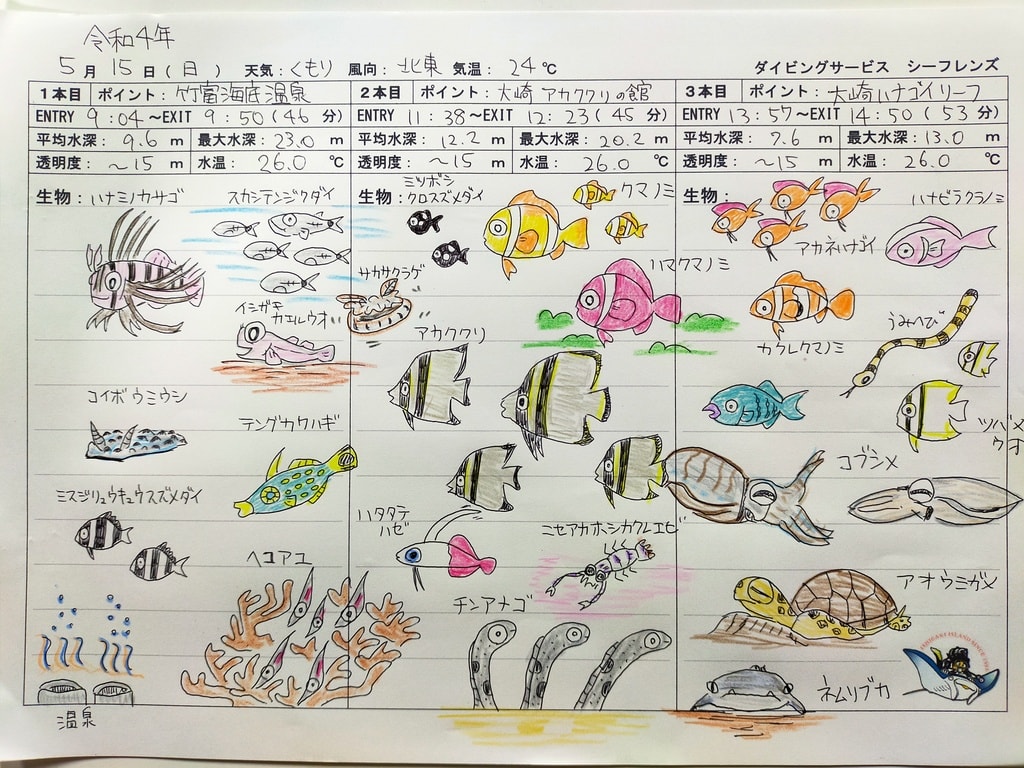 令和4年
5月 15日(日) 天気:くもり 風向:北東 気温:24℃ ダイビングサービス シーフレンズ
1本目 ポイント:竹富海底温泉
ENTRY 9:04〜EXIT 9:50(46分)
平均水深:9.6m 最大水深:23.0m
透明度:〜15m 水温:26.0℃
生物:ハナミノカサゴ
スカシテンジクダイ
イシガキ
カエルウオ
コイボウミウシ
テングカワハギ
ミスジリュウキュウスズメダイ
ヘコアユ
温泉
2本目 ポイント:大崎アカククリの館
ENTRY 11:38〜EXIT 12:23(45分)
平均水深:12.2m 最大水深:20.2m
透明度:〜15m 水温:26.0℃
生物:ミツボシ
クロスズメダイ
クマノミ
サカサクラゲ
ハマクマノミ
アカククリ
ハタタテ
ハゼ
ニセアカホシカクレエビ
チンアナゴ
3本目 ポイント:大崎ハナゴイリーフ
ENTRY 13:57〜EXIT 14:50(53分)
平均水深:7.6m 最大水深:13.0m
透明度:〜15m 水温:26.0℃
生物:
ハナビラクマノミ
アカネハナゴイ
うみへび
カクレクマノミ
ツバメ
ウオ
コブシメ
アオウミガメ
ネムリブカ